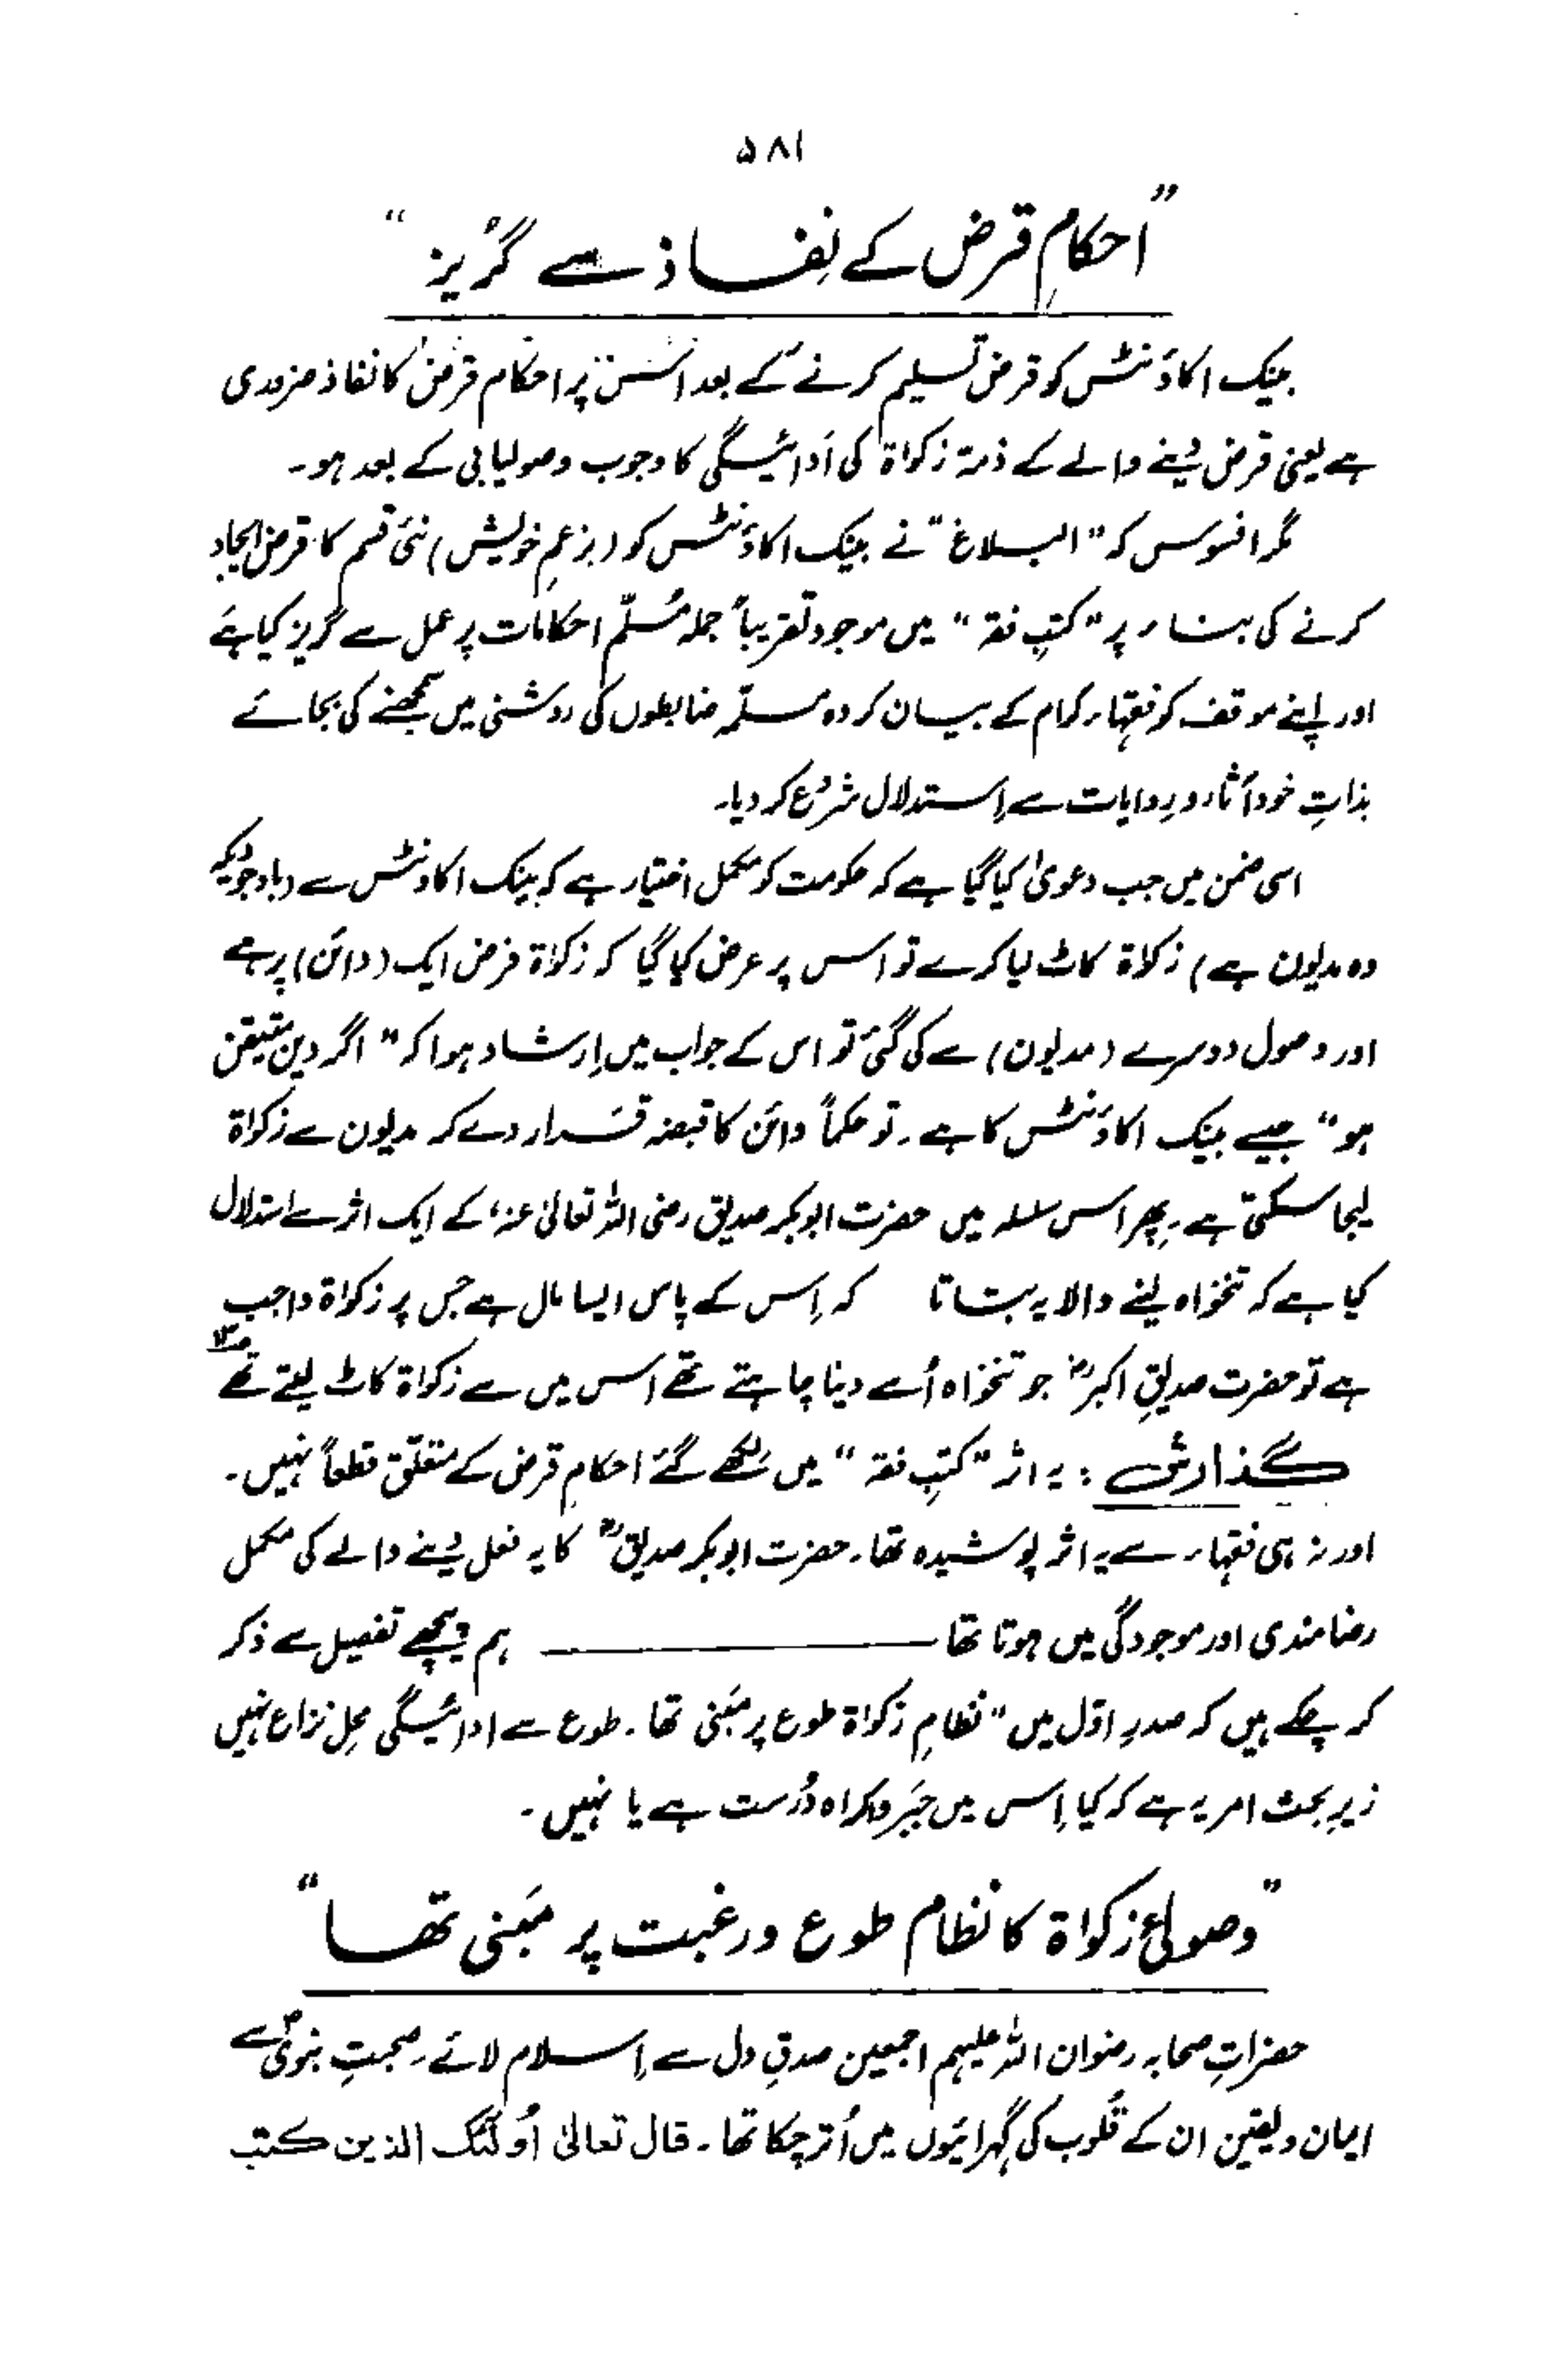 ۵۸۱
”احکامِ قرض کے نِفاذ سے گُریز“
بینک اکاؤنٹس کو قرض تسلیم کرنے کے بعد اس پر احکام قرض کا نفاذ ضروری
ہے یعنی قرض دینے والے کے ذمہ زکواۃ کی اَدائیگی کا وجوب وصولیابی کے بعد ہو۔
مگر افسوس کہ ”البلاغ“ نے بینک اکاؤنٹس کو (بزعمِ خویش) نئی قسم کا قرض ایجاد
کرنے کی بناء پر ”کتبِ فقہ“ میں موجود تقریباً جملہ مُسلّم احکامات پر عمل سے گریز کیا ہے
اور اپنے موقف کو فقہاء کرام کے بیان کردہ مسلّمہ ضابطوں کی روشنی میں سمجھنے کی بجائے
بذاتِ خود آثار و روایات سے اِستدلال شُروع کر دیا۔
اسی ضمن میں جب دعویٰ کیا گیا ہے کہ حکومت کو مکمل اختیار ہے کہ بینک اکاونٹس سے (باوجودیکہ
وہ مدیون ہے) زکواۃ کاٹ لیا کرے تو اس پر عرض کیا گیا کہ زکواۃ فرض ایک (دائن) پر ہے
اور وصول دوسرے (مدیون) سے کی گئی تو اس کے جواب میں اِرشاد ہوا کہ ”اگر دین متیقن
ہو“ جیسے بینک اکاؤنٹس کا ہے۔ تو حکماً دائن کا قبضہ قرار دے کر مدیون سے زکواۃ
لیجا سکتی ہے۔ پھر اس سلسلہ میں حضرت ابوبکر صدیق رضی اللہ تعالیٰ عنہ، کے ایک اثر سے استدلال
کیا ہے کہ تنخواہ لینے والا یہ بتاتا کہ اِس کے پاس ایسا مال ہے جس پر زکواۃ واجب
ہے تو حضرت صدیقِ اکبرؓ جو تنخواہ اُسے دینا چاہتے تھے اس میں سے زکواۃ کاٹ لیتے تھے
گذارش : یہ اثر ”کتبِ فقہ“ میں لکھے گئے احکامِ قرض کے متعلّق قطعاً نہیں۔
اور نہ ہی فقہاء سے یہ اثر پوشیدہ تھا۔ حضرت ابوبکر صدیقؓ کا یہ فعل دینے والے کی مکمل
رضا مندی اور موجودگی میں ہوتا تھا ——— ہم پیچھے تفصیل سے ذکر
کر چکے ہیں کہ صدرِ اوّل میں ”نظامِ زکواۃ طوع پر مَبنی تھا۔ طوع سے ادائیگی محلِ نزاع نہیں
زیرِ بحث امر یہ ہے کہ کیا اِس میں جَبَر و اکراہ دُرست ہے یا نہیں۔
”وصولیٔ زکواۃ کا نظام طوع و رغبت پر مَبنی تھا“
حضراتِ صحابہ رضوان اللہ علیہم اجمعین صدقِ دل سے اِسلام لائے۔ صحبتِ نبویؐ سے
ایمان و یقین ان کے قُلوب کی گہرائیوں میں اُتر چکا تھا۔ قال تعالیٰ اُولٰئک الذین کتب